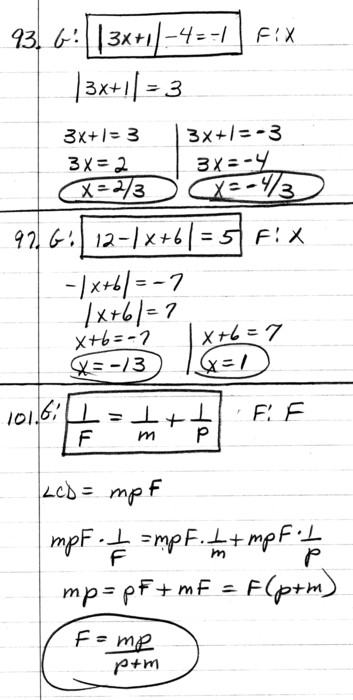 93. G: |3x+1| - 4 = -1 F: X
|3x+1| = 3
3x+1 = 3 | 3x+1 = -3
3x = 2 | 3x = -4
x = 2/3 | x = -4/3
97. G: 12 - |x+6| = 5 F: X
-|x+6| = -7
|x+6| = 7
x+6 = -7 | x+6 = 7
x = -13 | x = 1
101. G: 1/F = 1/m + 1/p F: F
LCD = mpF
mpF · 1/F = mpF · 1/m + mpF · 1/p
mp = pF + mF = F(p+m)
F = mp/p+m